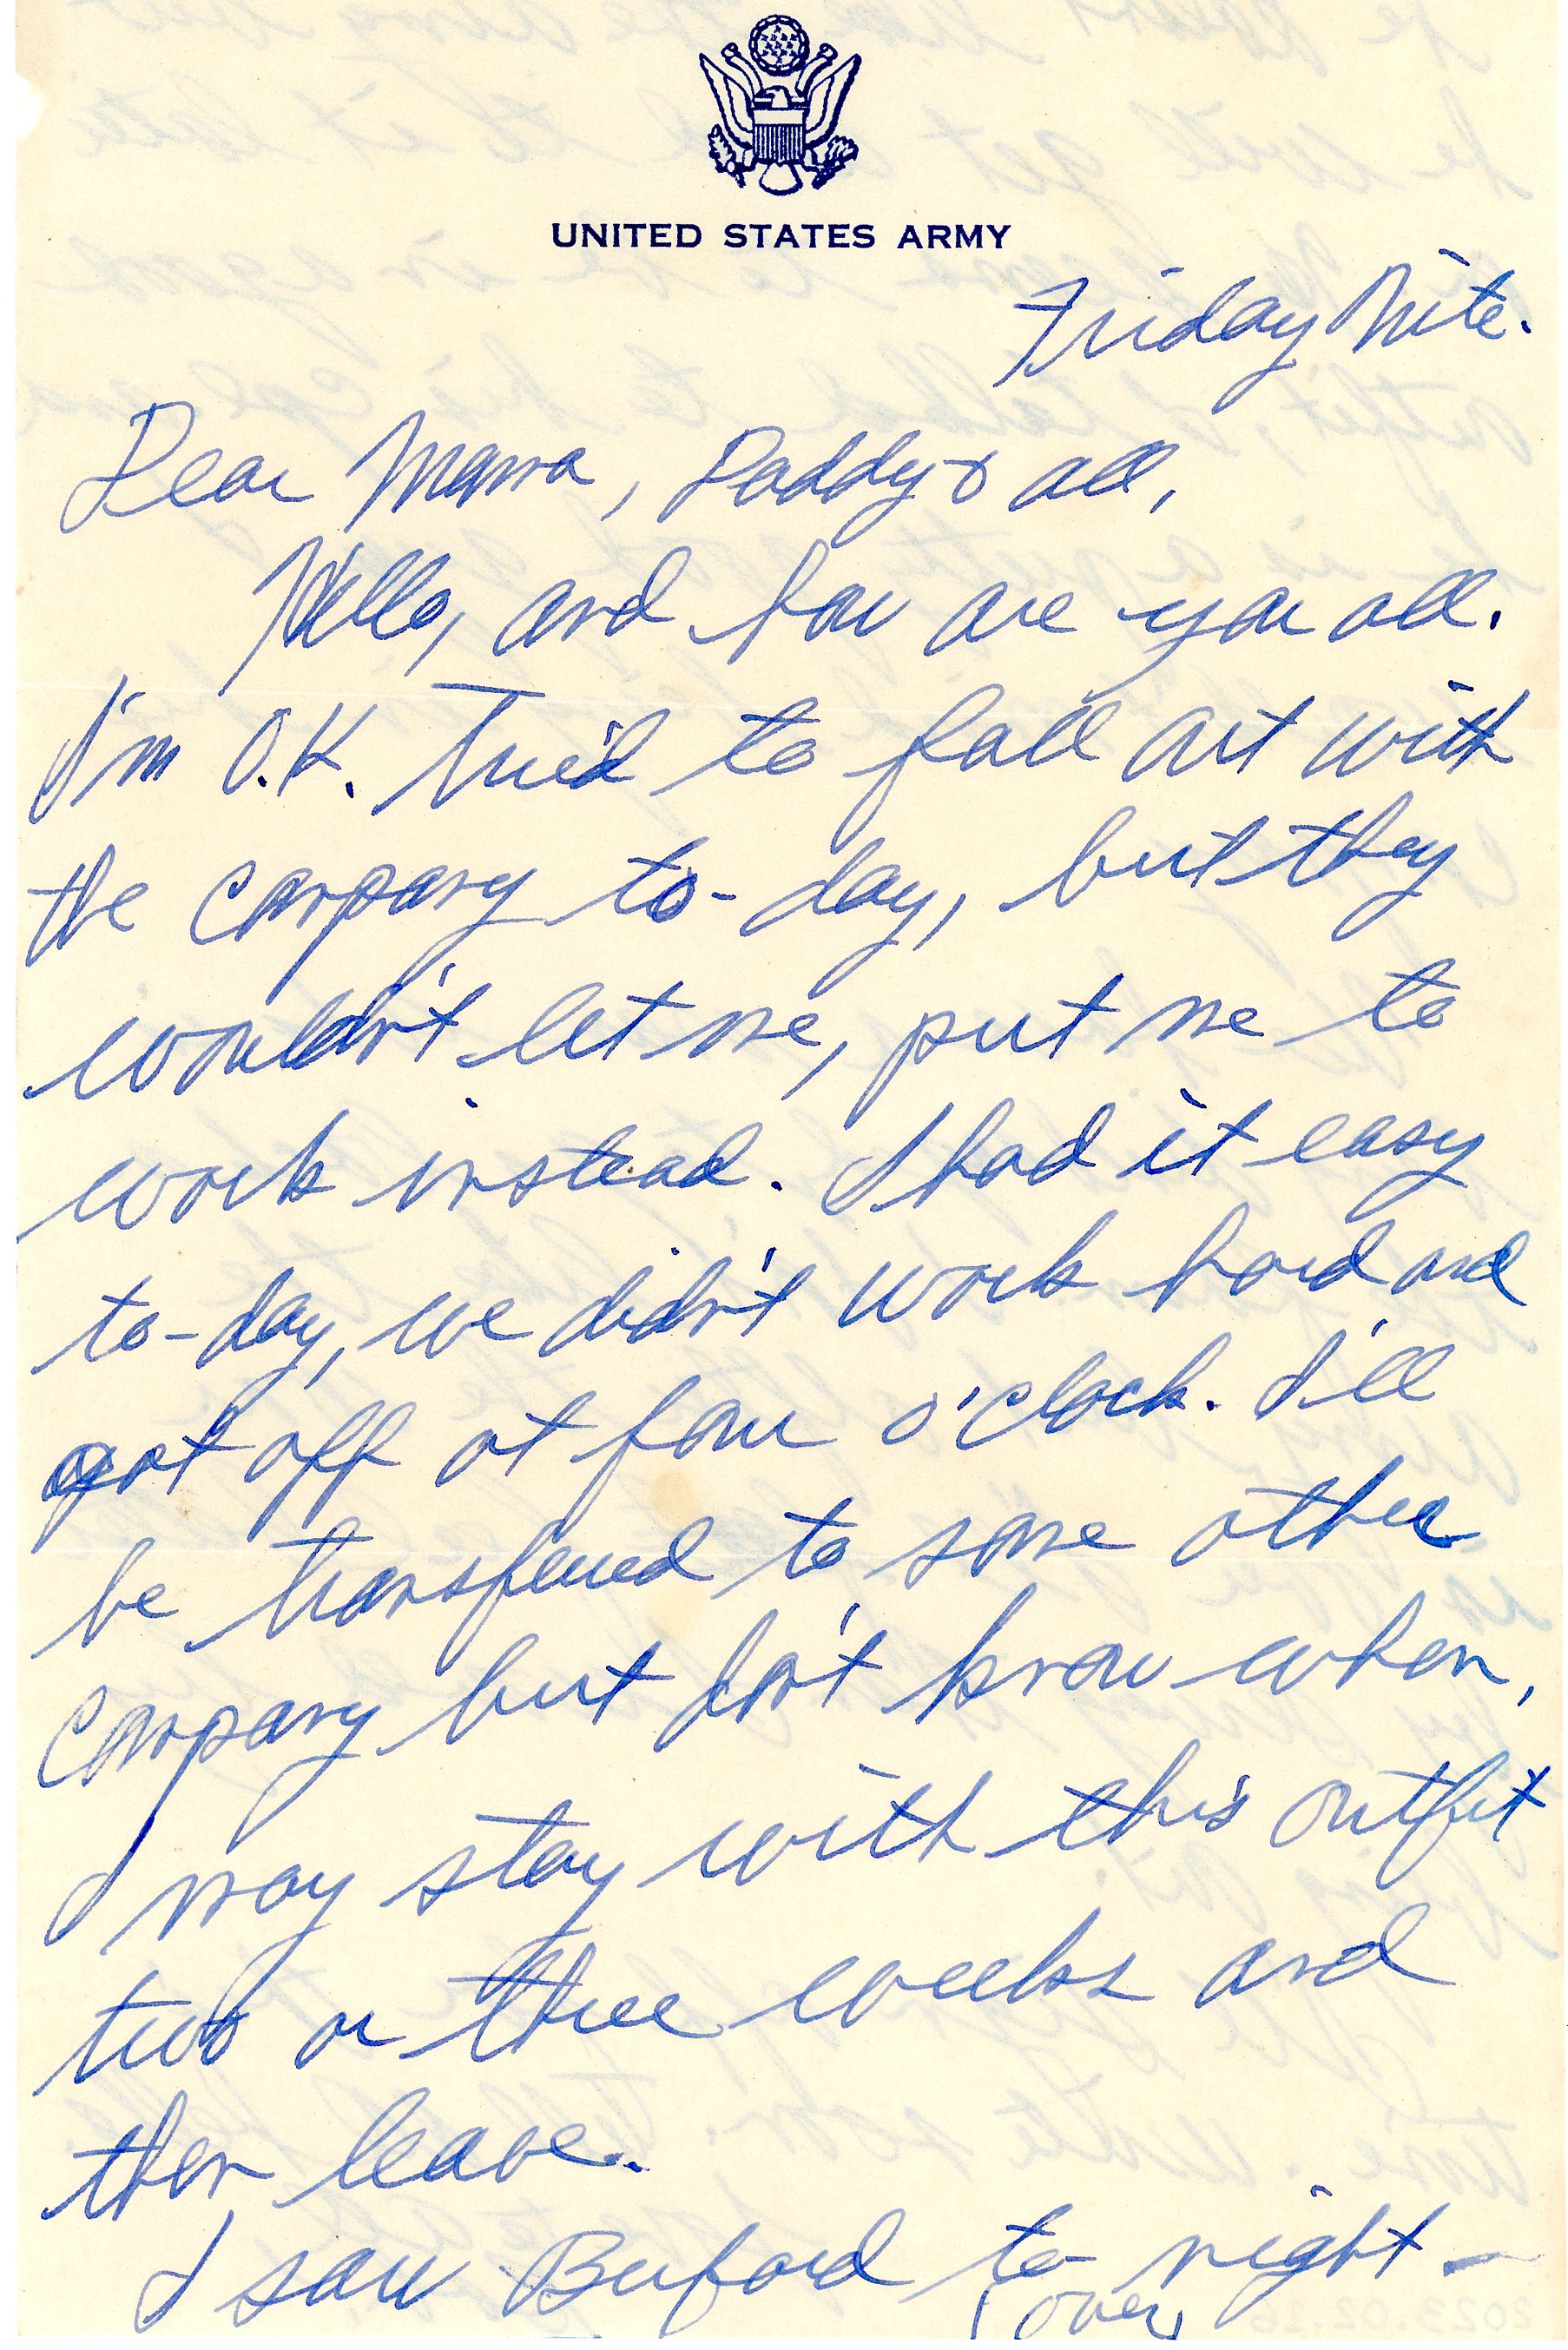 UNITED STATES ARMY
Friday Nite.
Dear Mama, Daddy & all,
Hello, and how are you all.
I'm O.K. Tried to fall out with
the company to-day, but they
wouldn't let me, put me to
work instead. I had it easy
to-day, we didn't work hard and
got off at four o'clock. I'll
be transferred to some other
company but don't know when,
I may stay with this outfit
two or three weeks and
then leave.
I saw Buford to-night —
(over)
2023.02.16